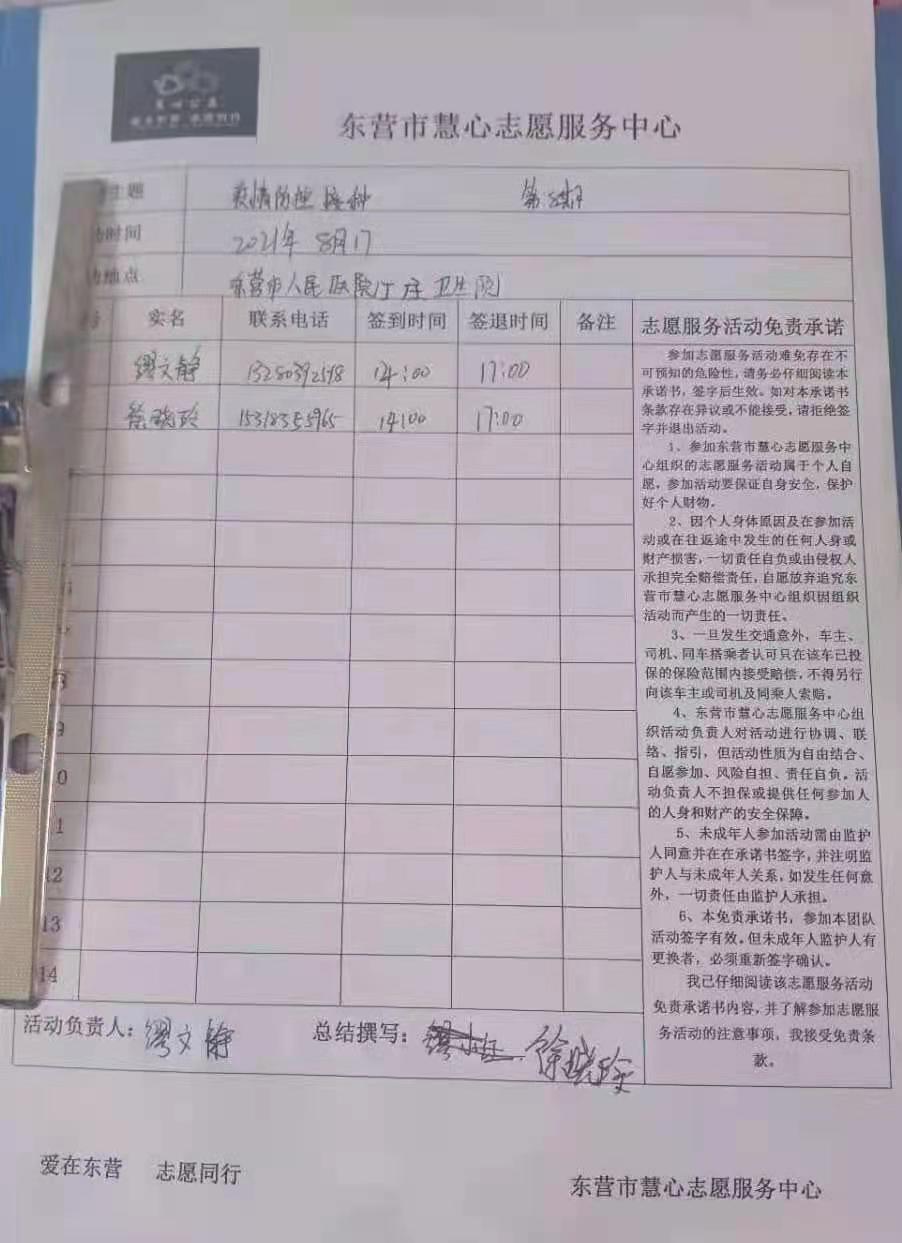 东营市慧心志愿服务中心
主题 疫情防控 接种
时间 2021年 8月17
地点 东营市人民医院 庄卫生院
实名 联系电话 签到时间 签退时间 备注 志愿服务活动免责承诺
缪文静 14:00 17:00
徐晓玲 15318355965 14:00 17:00
9
12
13
14
参加志愿服务活动难免存在不
可预知的危险性，请务必仔细阅读本
承诺书，签字后生效。如对本承诺书
条款存在异议或不能接受，请拒绝签
字并退出活动。
1、参加东营市慧心志愿服务中
心组织的志愿服务活动属于个人自
愿，参加活动要保证自身安全，保护
好个人财物。
2、因个人身体原因及在参加活
动或在往返途中发生的任何人身或
财产损害，一切责任自负或由侵权人
承担完全赔偿责任，自愿放弃追究东
营市慧心志愿服务中心组织因组织
活动而产生的一切责任。
3、一旦发生交通意外，车主、
司机、同车搭乘者认可只在该车已投
保的保险范围内接受赔偿，不得另行
向该车主或司机及同乘人索赔。
4、东营市慧心志愿服务中心组
织活动负责人对活动进行协调、联
络、指引，但活动性质为自由结合、
自愿参加、风险自担、责任自负。活
动负责人不担保或提供任何参加人
的人身和财产的安全保障。
5、未成年人参加活动需由监护
人同意并在在承诺书签字，并注明监
护人与未成年人关系，如发生任何意
外，一切责任由监护人承担。
6、本免责承诺书，参加本团队
活动签字有效。但未成年人监护人有
更换者，必须重新签字确认。
我已仔细阅读该志愿服务活动
免责承诺书内容，并了解参加志愿服
务活动的注意事项，我接受免责条
款。
活动负责人：缪文静 总结撰写：徐晓玲
爱在东营 志愿同行
东营市慧心志愿服务中心